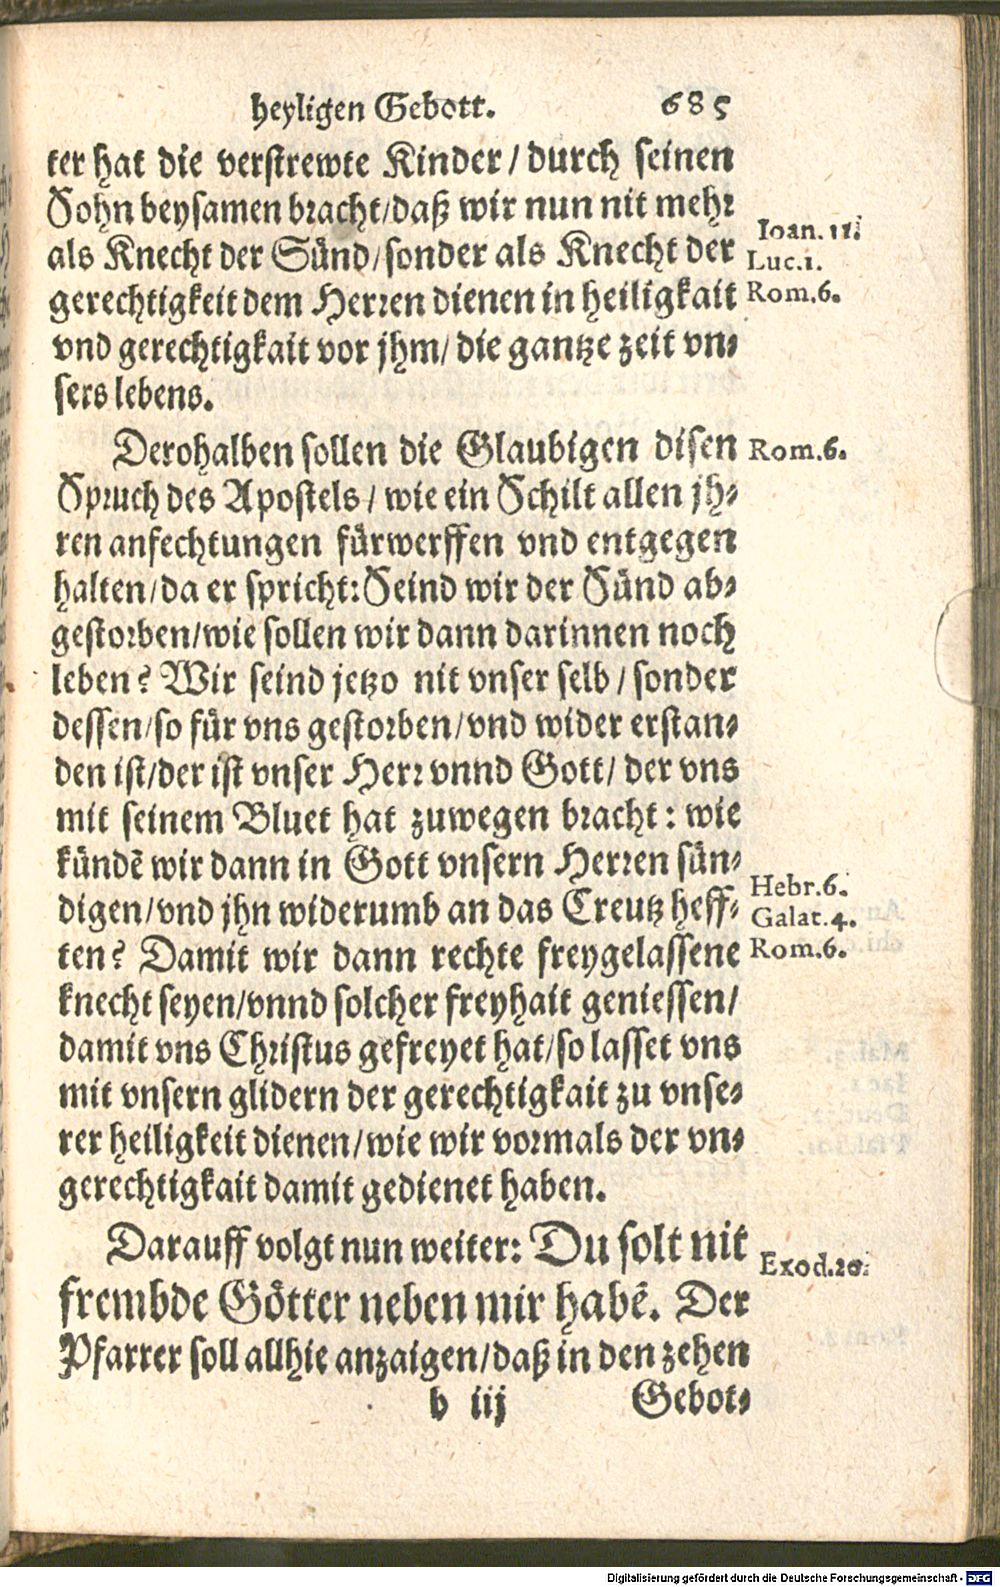 heyligen Gebott. 685
ter hat die verstrewte Kinder / durch seinen
Sohn beysamen bracht/daß wir nun nit mehr
als Knecht der Sünd/sonder als Knecht der
gerechtigkeit dem Herren dienen in heiligkait
vnd gerechtigkait vor jhm/ die gantze zeit vn-
sers lebens.
Ioan. 11.
Luc.1.
Rom.6.
Derohalben sollen die Glaubigen disen
Spruch des Apostels / wie ein Schilt allen jh-
ren anfechtungen fürwerffen vnd entgegen
halten/da er spricht: Seind wir der Sünd ab-
gestorben/wie sollen wir dann darinnen noch
leben? Wir seind jetzo nit vnser selb / sonder
dessen/so für vns gestorben/vnd wider erstan-
den ist/der ist vnser Herr vnnd Gott/ der vns
mit seinem Bluet hat zuwegen bracht: wie
kündẽ wir dann in Gott vnsern Herren sün-
digen/vnd jhn widerumb an das Creutz heff-
ten? Damit wir dann rechte freygelassene
knecht seyen/vnnd solcher freyhait geniessen/
damit vns Christus gefreyet hat/so lasset vns
mit vnsern glidern der gerechtigkait zu vnse-
rer heiligkeit dienen/wie wir vormals der vn-
gerechtigkait damit gedienet haben.
Rom.6.
Hebr.6.
Galat.4.
Rom.6.
Darauff volgt nun weiter: Du solt nit
frembde Götter neben mir habẽ. Der
Pfarrer soll allhie anzaigen/daß in den zehen
Exod.20.
b iij Gebot-
Digitalisierung gefördert durch die Deutsche Forschungsgemeinschaft - DFG